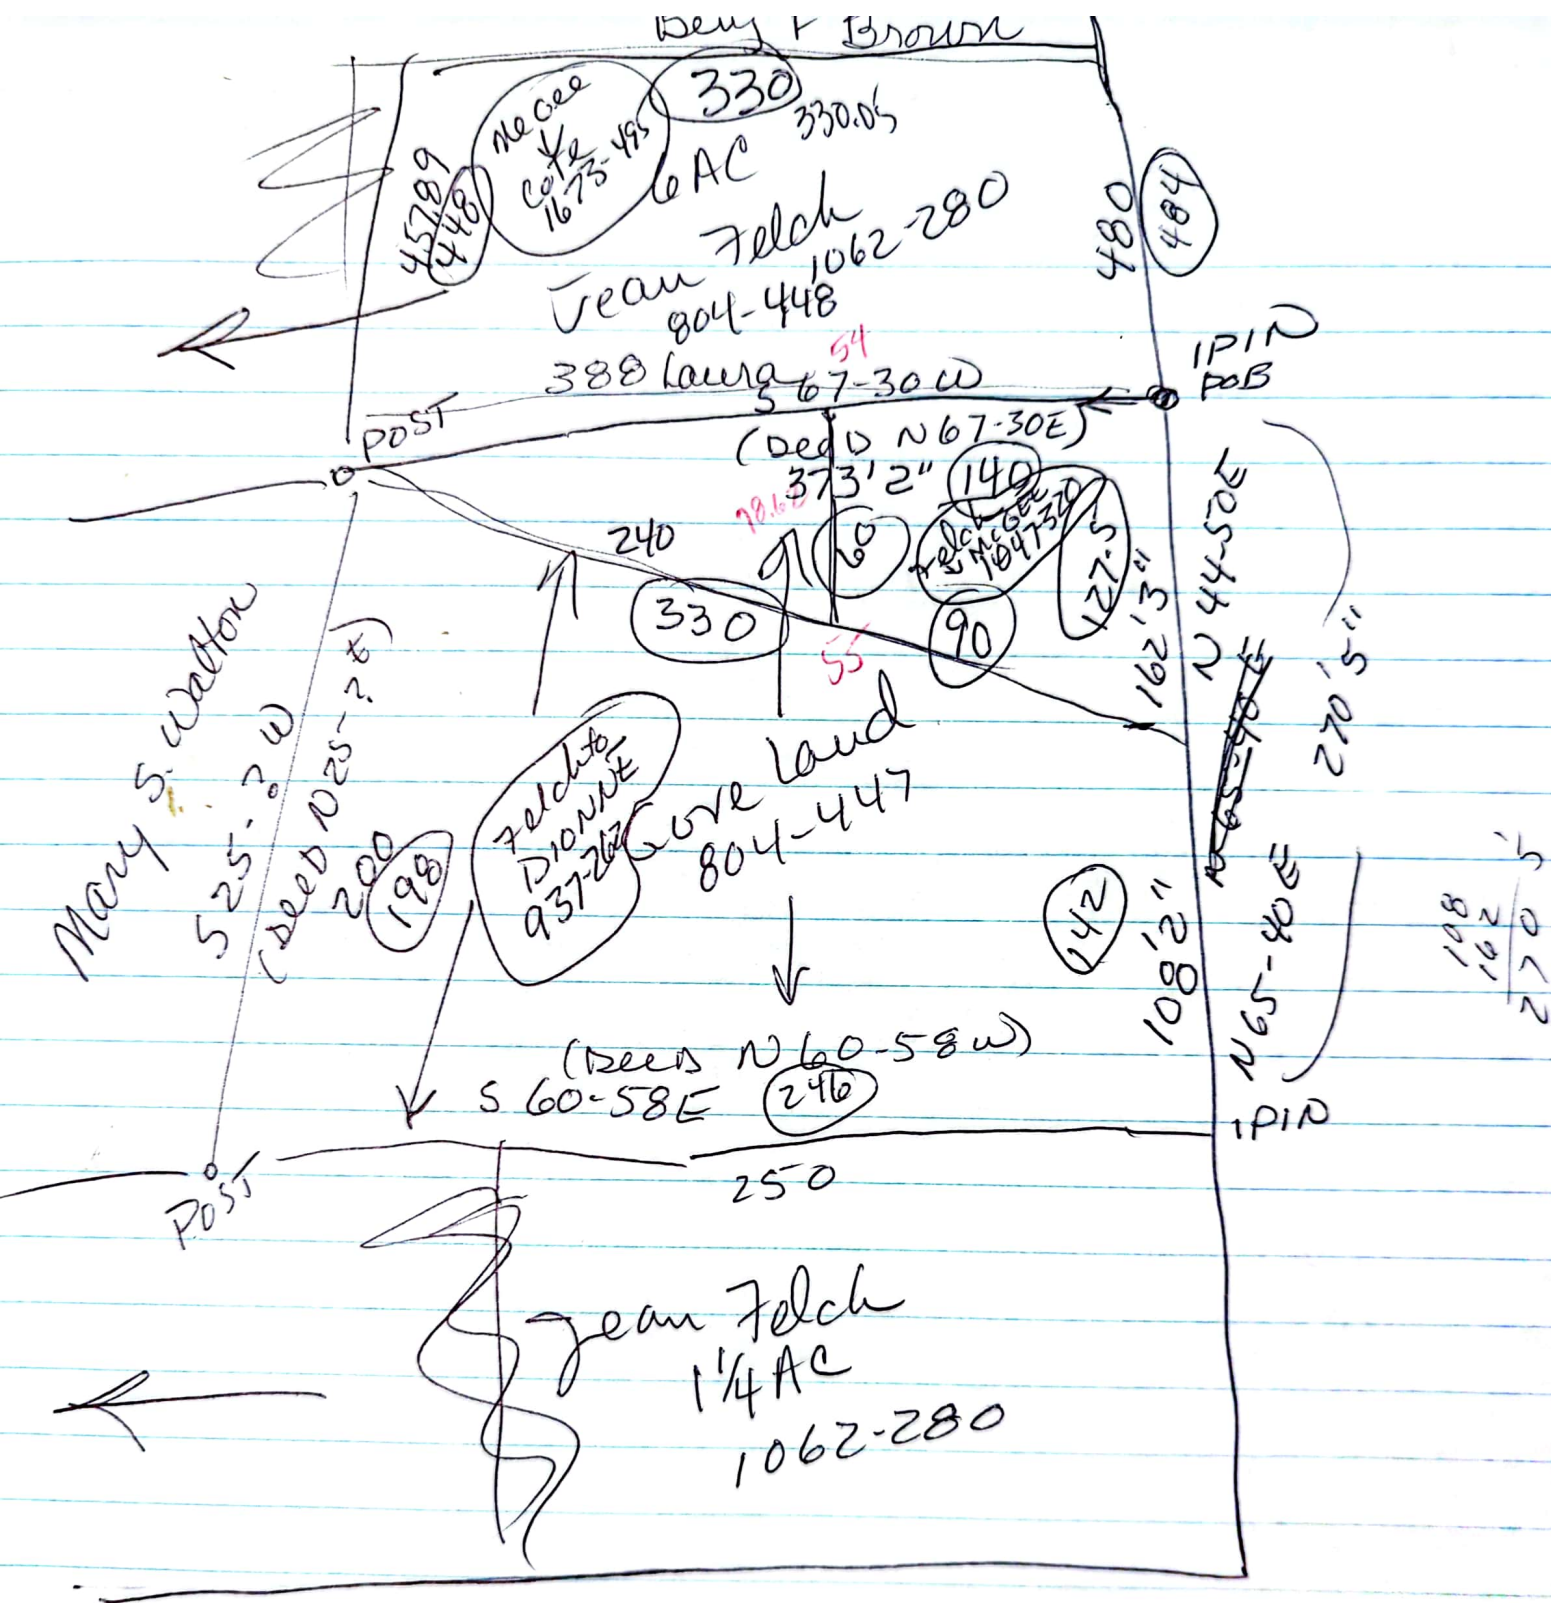 Brown
330
330.05
McGee
Cote
1673-495
6 AC
457.89
448
Jean Felch
1062-280
804-448
480
484
388 Laura
54
S 67-30 W
IPIN
POB
POST
(Deed N 67-30E)
373' 2"
140
98.6
60
Felch
McGEE
127.5
240
330
90
55
162' 3"
N 44-50E
270' 5"
N 65-40 E
Mary S. Walton
S 25-? W
(Deed N 25-? E)
200
198
Felch to
DIONNE
937-262
Gove Land
804-447
242
108' 2"
N 65-40 E
108
162
270 5
(Deed N 60-58 W)
S 60-58E
246
IPIN
250
POST
Jean Felch
1 1/4 AC
1062-280